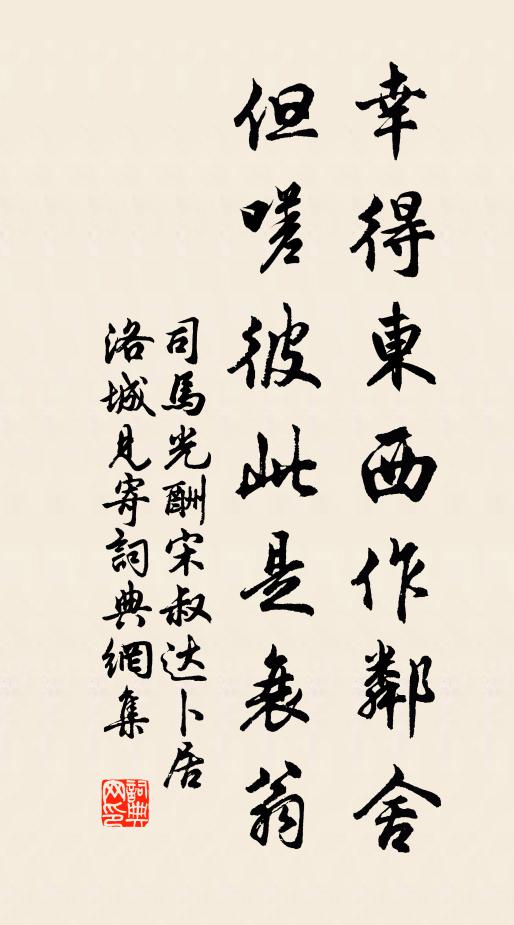 幸得東西作鄰舍
但嗟彼此是衰翁
司馬光酬宋叔达卜居
洛城見寄詞典網集
詞典网印